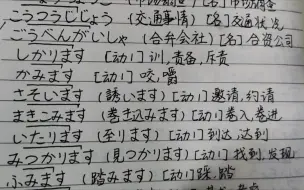 こうつうじじょう (交通事情) [名] 交通状况
ごうべんがいしゃ (合弁会社) [名] 合资公司
しかります [动1] 训,责备,斥责
かみます [动1] 咬,嚼
さそいます (誘います) [动1] 邀请,约请
まきこみます (巻き込みます) [动1] 卷入,卷进
いたります (至ります) [动1] 到达,达到
みつかります (見つかります) [动1] 找到,发现
ふみます (踏みます) [动1] 踩,踏